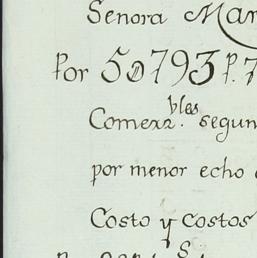 Senora Mar
Por 50793 P. 7
Comerz.bles segun
por menor echo
Costo y costos